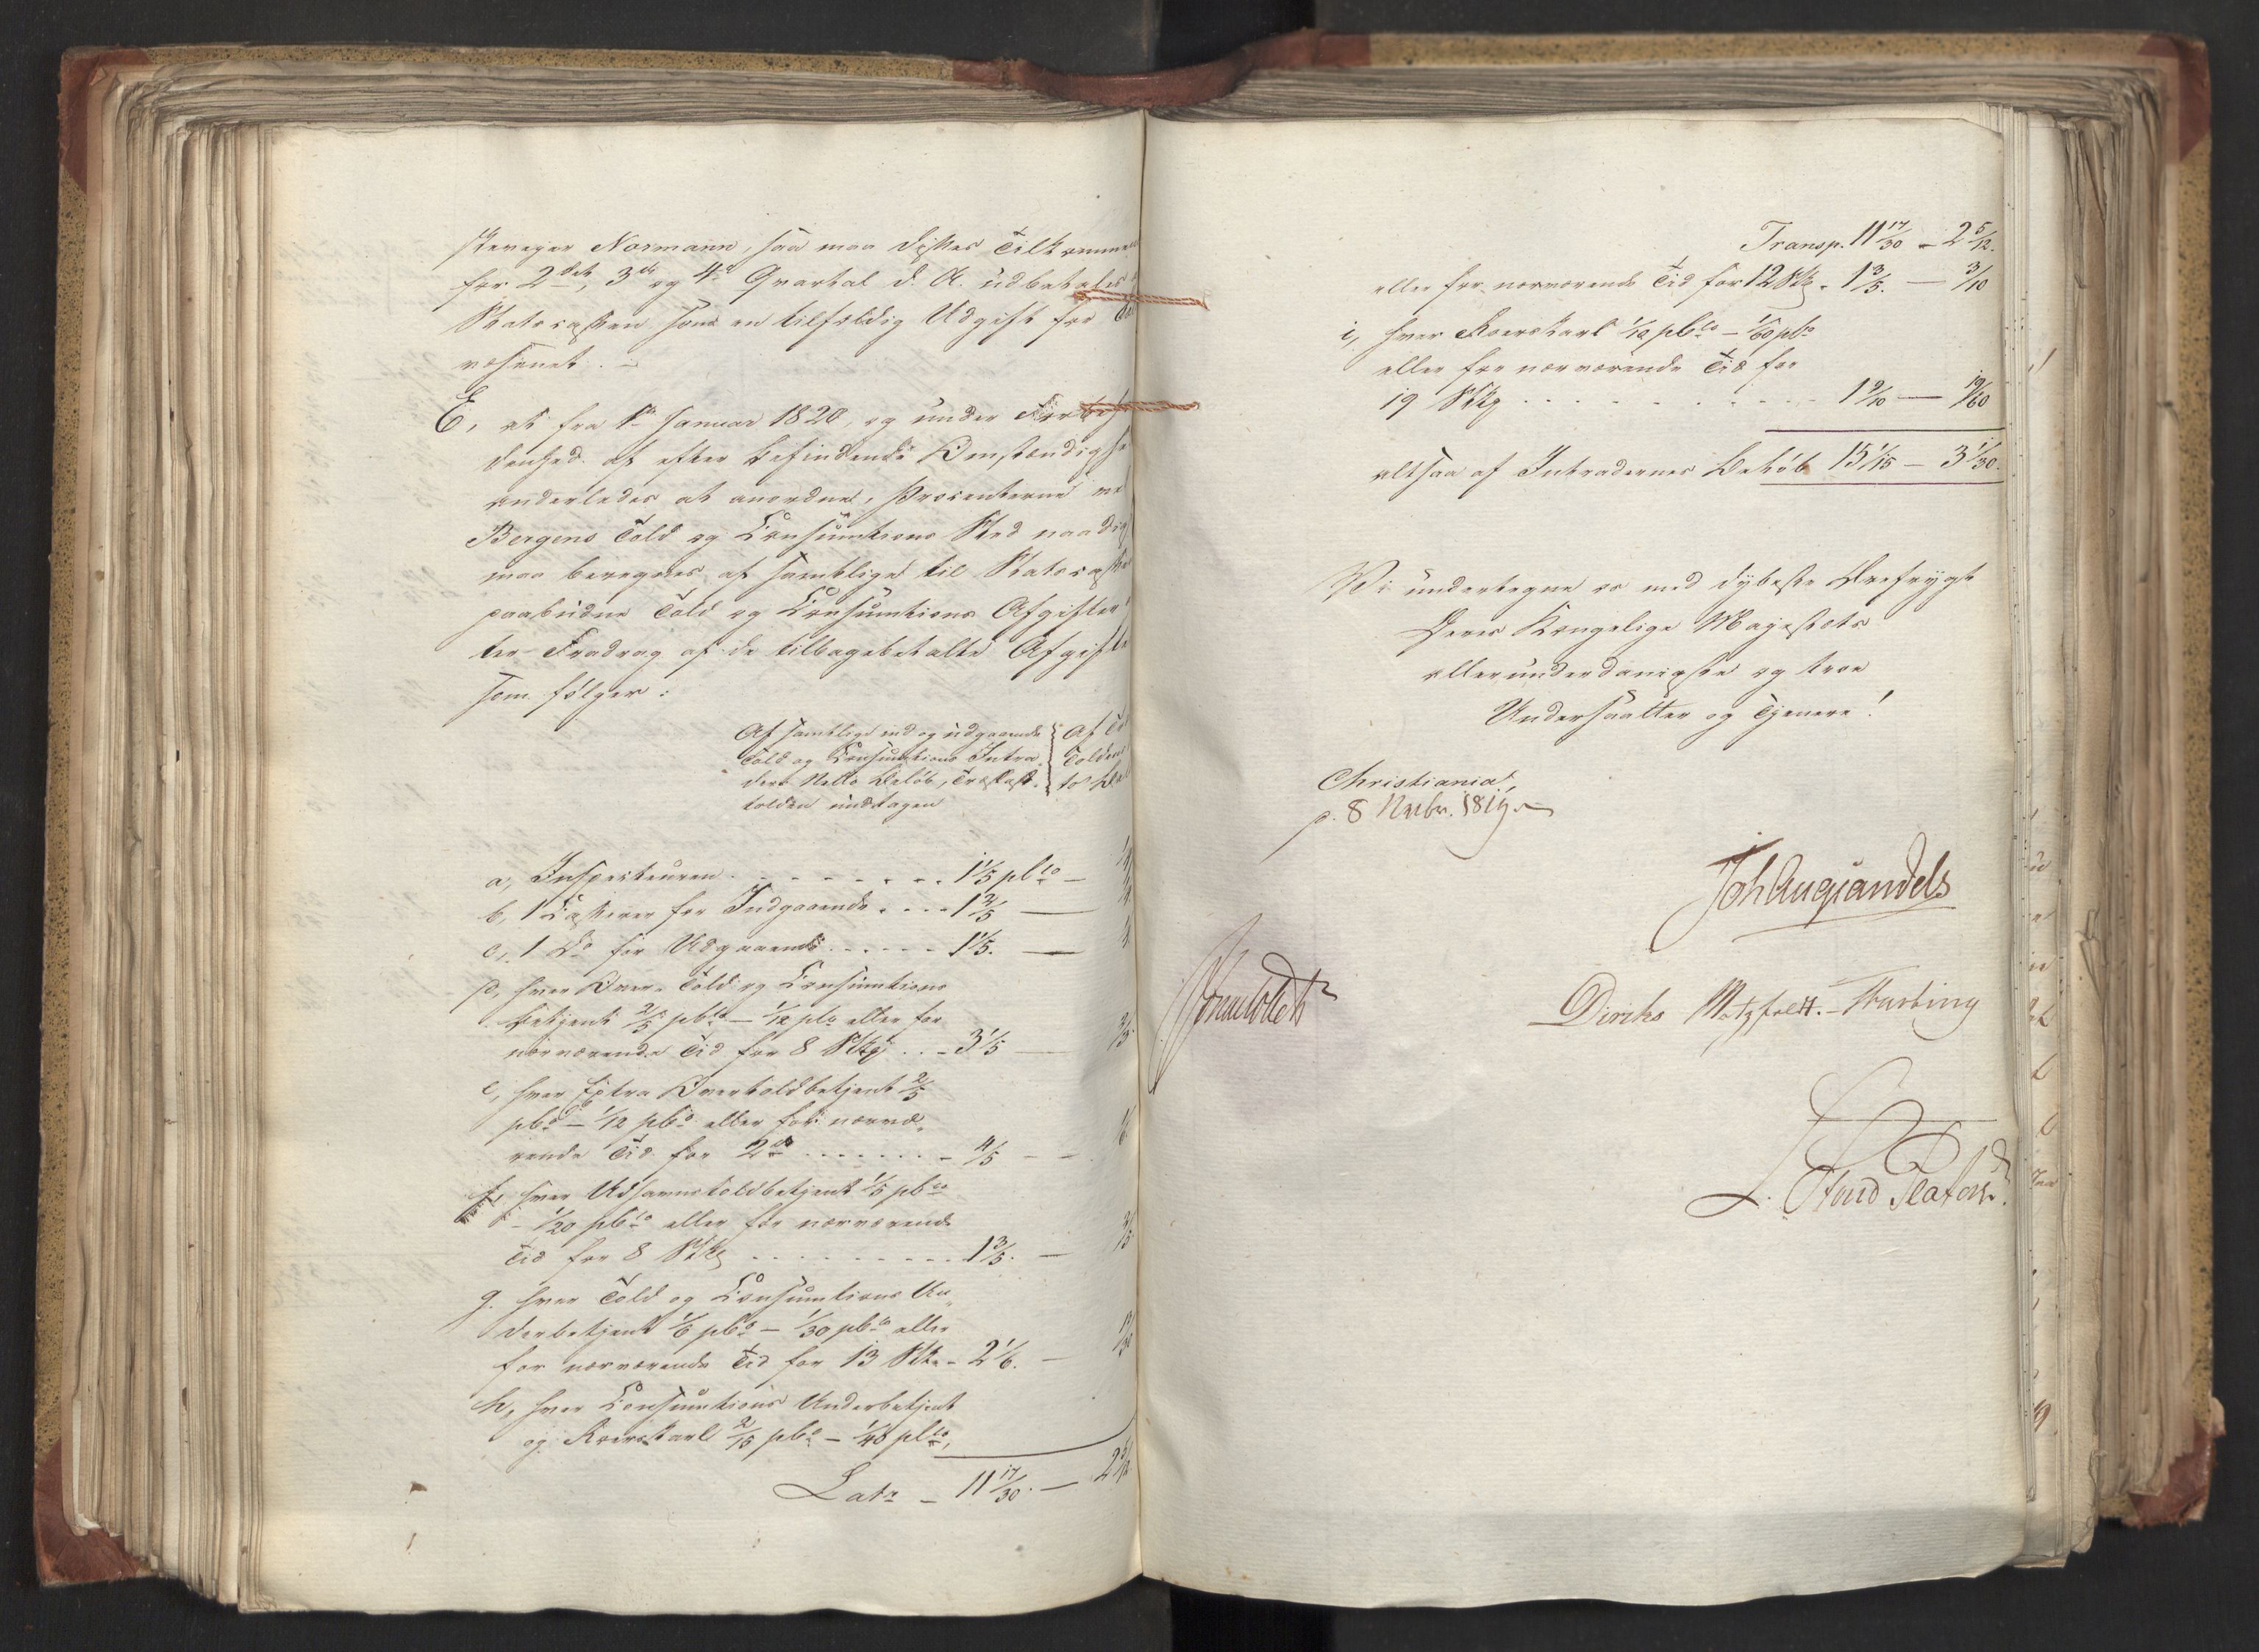 skeveyer Normann, saa maa disses Tilkomme
for 2det, 3de og 4de Qvartal d. A. udbetales
Statscassen som en tilfældig Udgift for
væsenet.
E, at fra 1ste Januar 1820, og under Forbe
denhed af efter befindende Omstændighe
anderledes at anordne, Procenterne ve
Bergens Told og Consumtions Sted naadigst
maa beregnes af samtlige til Statscassen
paabudne Told og Consumtions Afgifter
ter Fradrag af de tilbagebetalte Afgifte
som følger:
Af samtlige ind og udgaaende
Told og Consumtions Intra-
ders Netto Beløb, Trælast-
tolden undtagen
Af
Tolden
to
a, Inspecteuren - - - - - - - 1 1/5 pCto -
b, 1 Casserer for Indgaaende - - - 1 2/5 —
c, 1 Do for Udgaaende - - - - - 1 1/5. —
d, hver Over- Told og Consumtions
betjent 2/5 pCto - 1/12 pCto eller for
nærværende Tid for 8 Stkr - - 3 1/5 — 2/3
e, hver Extra Overtoldbetjent 2/5
pCto - 1/12 pCto eller for nærvæ-
rende Tid for 2de - - - - - - 4/5 - - 1/6
f, hver Udhavnstoldbetjent 1/5 pCto
- 1/20 pCto eller for nærværende
Tid for 8 Stkr - - - - - - - - 1 3/5. — 2/5
g. hver Told og Consumtions Un-
derbetjent 1/6 pCto - 1/30 pCto eller
for nærværende Tid for 13 Stkr - 2 1/6. — 13/30
h, hver Consumtions Underbetjent
og Roerskarl 2/15 pCto - 1/40 pCto,
Latr - 11 17/30. — 2 5/12.
Transp. 11 17/30 - 2 5/12.
eller for nærværende Tid for 12 Stkr - 1 3/5. — 3/10
i, hver Roerskarl 1/10 pCto - 1/60 pCto
eller for nærværende Tid for
19 Stkr - - - - - - - - - - - 1 9/10 — 19/60
altsaa af Intradernes Beløb 15 1/15 — 3 1/30.
Vi undertegne os med dybeste Ærefrygt
Deres Kongelige Majestæts
allerunderdanigste og troe
Undersaatter og Tjenere!
Christiania,
p. 8 Novbr. 1819.
Joh Aug Sandels
Diriks Motzfeldt. - Fasting
L. Stoud Platou